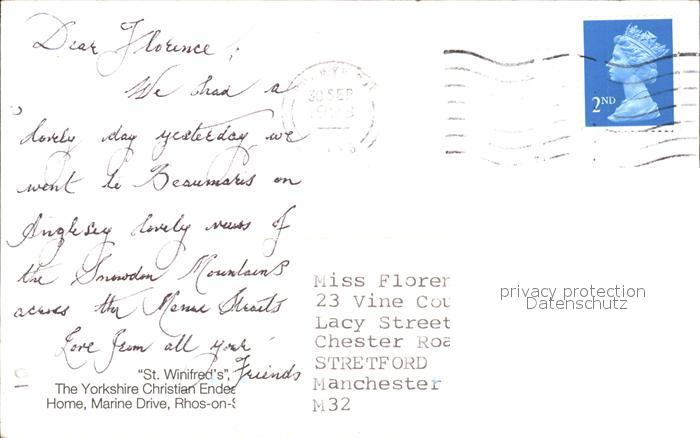 Dear Florence,
We had a
lovely day yesterday we
went to Beaumaris on
Anglesey lovely views of
the Snowdon Mountains
across the Menai Straits
Love from all your
Friends
"St. Winifred's",
The Yorkshire Christian Endea
Home, Marine Drive, Rhos-on-S
30 SEP
2ND
Miss Floren
23 Vine Cou
Lacy Street
Chester Roa
STRETFORD
Manchester
M32
privacy protection
Datenschutz